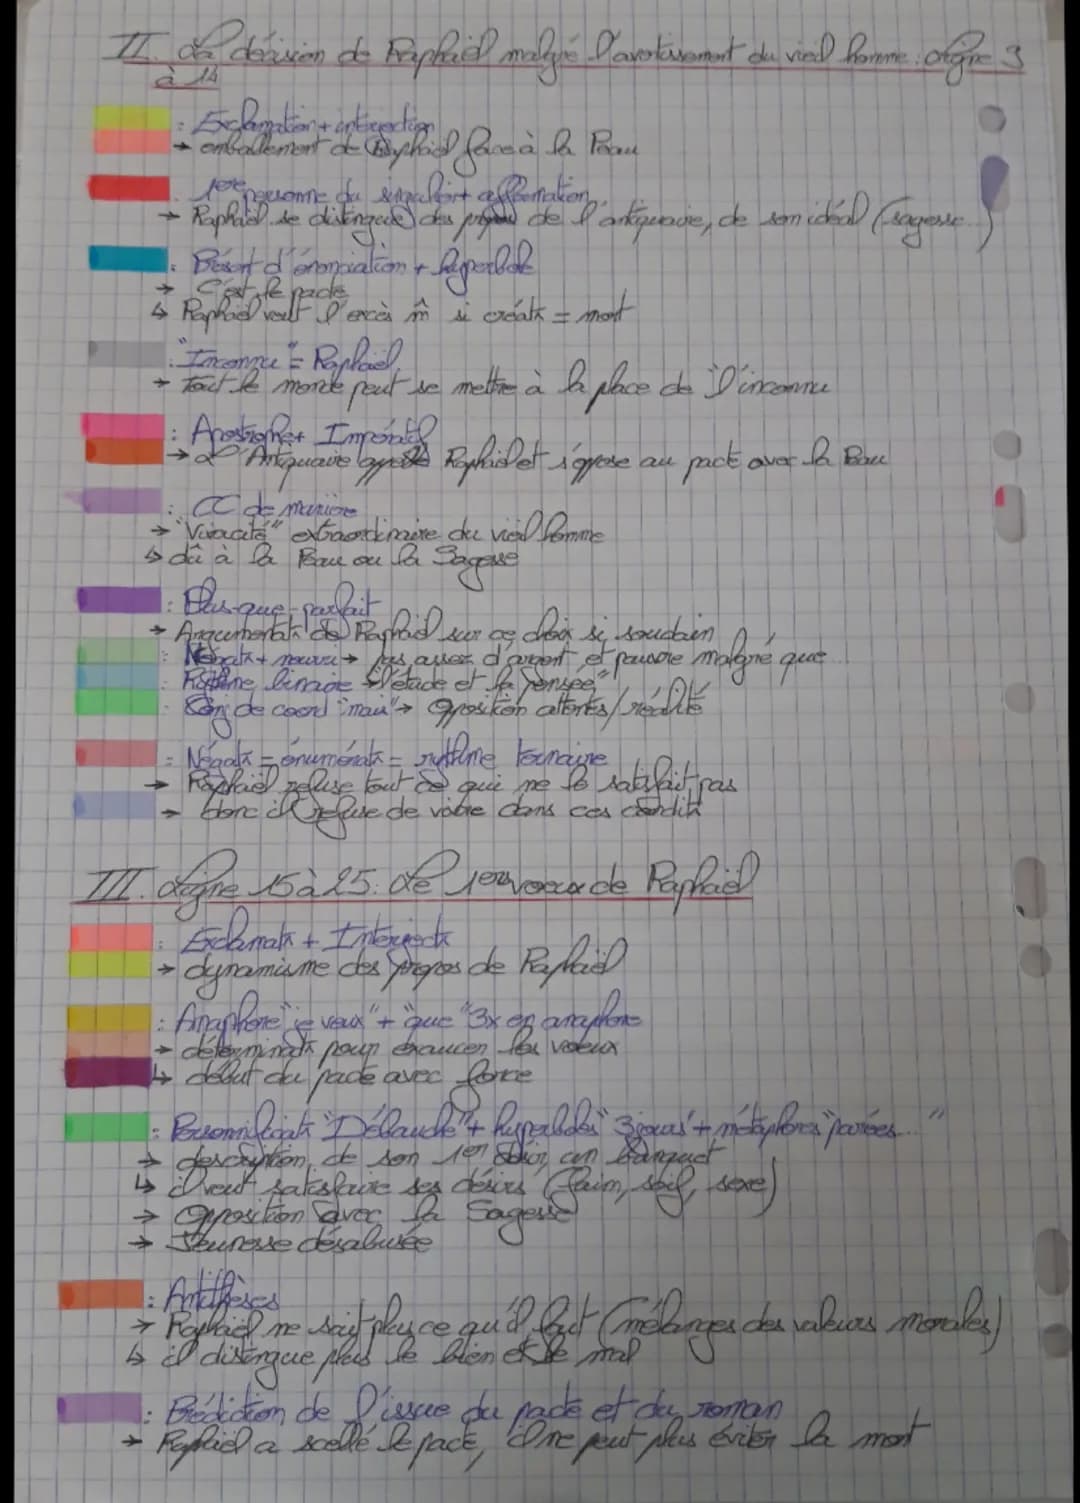 II. La décision de Raphaël malgré l'avertissement du vieil homme : ligne 3
à 14
: Exclamation + interjection
→ emballement de Raphaël face à la Peau
1ère personne du singulier + affirmation
→ Raphaël se distingue des propos de l'antiquaire, de son idéal (sagesse...)
: Présent d'énonciation + hyperbole
→ C'est le pacte
↳ Raphaël veut l'excès m̂ si = mort
: "Inconnu" = Raphaël
→ Tout le monde peut se mettre à la place de l'inconnu
: Apostrophe + Impératif
→ L'Antiquaire Raphaël et s'oppose au pact avec la Peau
: CC de manière
→ "Vivacité" extraordinaire du vieil homme
↳ dû à la Peau ou la Sagesse
: Plus-que-parfait
→ Argumentat° de Raphaël sur ce choix si soudain
: Négat° + → pas assez d'argent et pauvre malgré que...
: Rythme binaire → "l'étude et la pensée"
: Conj de coord "mais" → opposition attentes/réalité
: Négat° = énumérat° = rythme ternaire
→ Raphaël refuse tout ce qui ne le satisfait pas
→ donc il refuse de vivre dans ces condit°
III. Ligne 15 à 25 : Le 1er voeux de Raphaël
: Exclamat° + Interject°
→ dynamisme des propos de Raphaël
: Anaphore "je veux" + "que" 3x en anaphore
→ déterminat° pour exaucer les voeux
↳ début du pacte avec force
: Personnificat° "Débauche" + hyperboles "3 jours" + métaphores "parées..."
→ description de son 1er désir, un banquet
↳ il veut satisfaire ses désirs (faim, soif, sexe)
→ Opposition avec la Sagesse
→ Jeunesse désabusée
: Antithèses
→ Raphaël ne sait plus ce qu'il faut (mélanges des valeurs morales)
↳ il distingue plus le bien et le mal
: Prédiction de l'issue du pacte et du roman
→ Raphaël a scellé le pacte, il ne peut plus éviter la mort